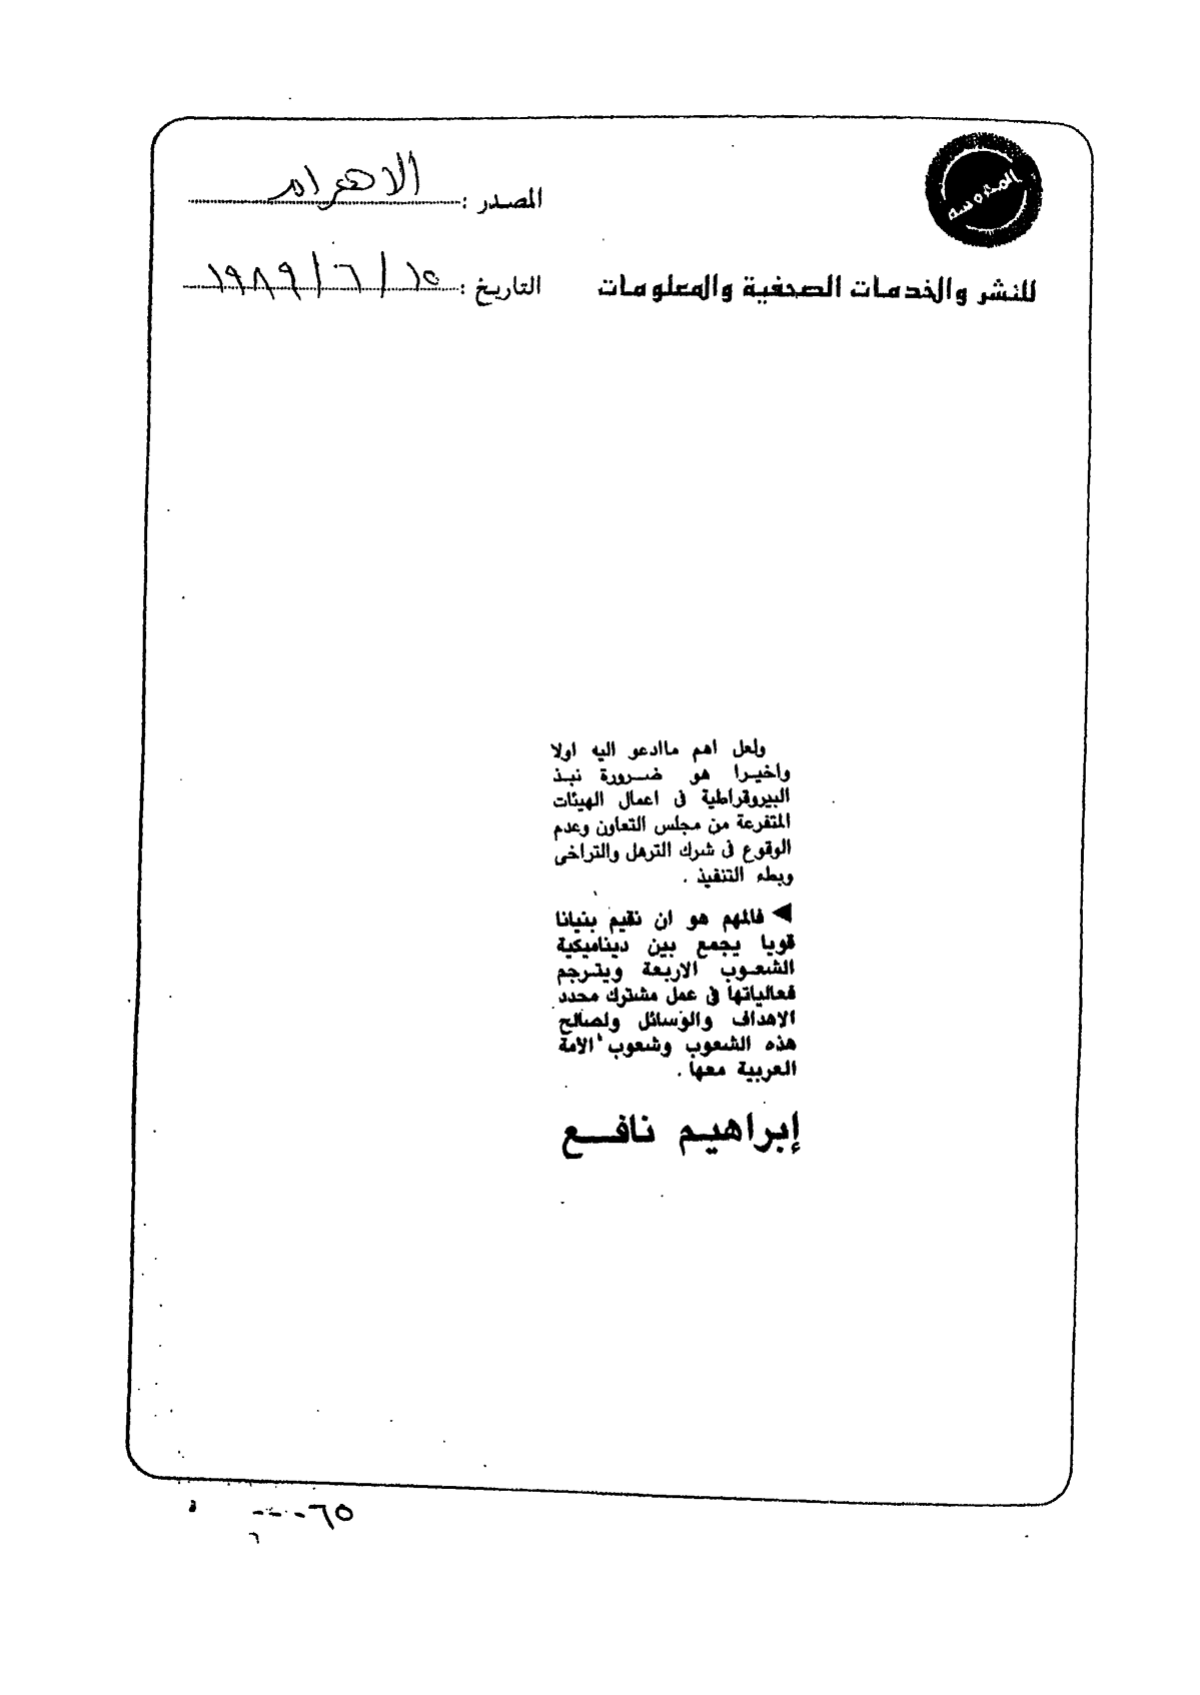 المحروسه
للنشر والخدمات الصحفية والمعلومات
المصدر : الاهرام
التاريخ : ١٥ / ٦ / ١٩٨٩
ولعل اهم ماادعو اليه اولا
واخيرا هو ضرورة نبذ
البيروقراطية فى اعمال الهيئات
المتفرعة من مجلس التعاون وعدم
الوقوع فى شرك الترهل والتراخى
وبطء التنفيذ .
◀ فالمهم هو ان نقيم بنيانا
قويا يجمع بين ديناميكية
الشعوب الاربعة ويترجم
فعالياتها فى عمل مشترك محدد
الاهداف والوسائل ولصالح
هذه الشعوب وشعوب الامة
العربية معها .
إبراهيم نافع